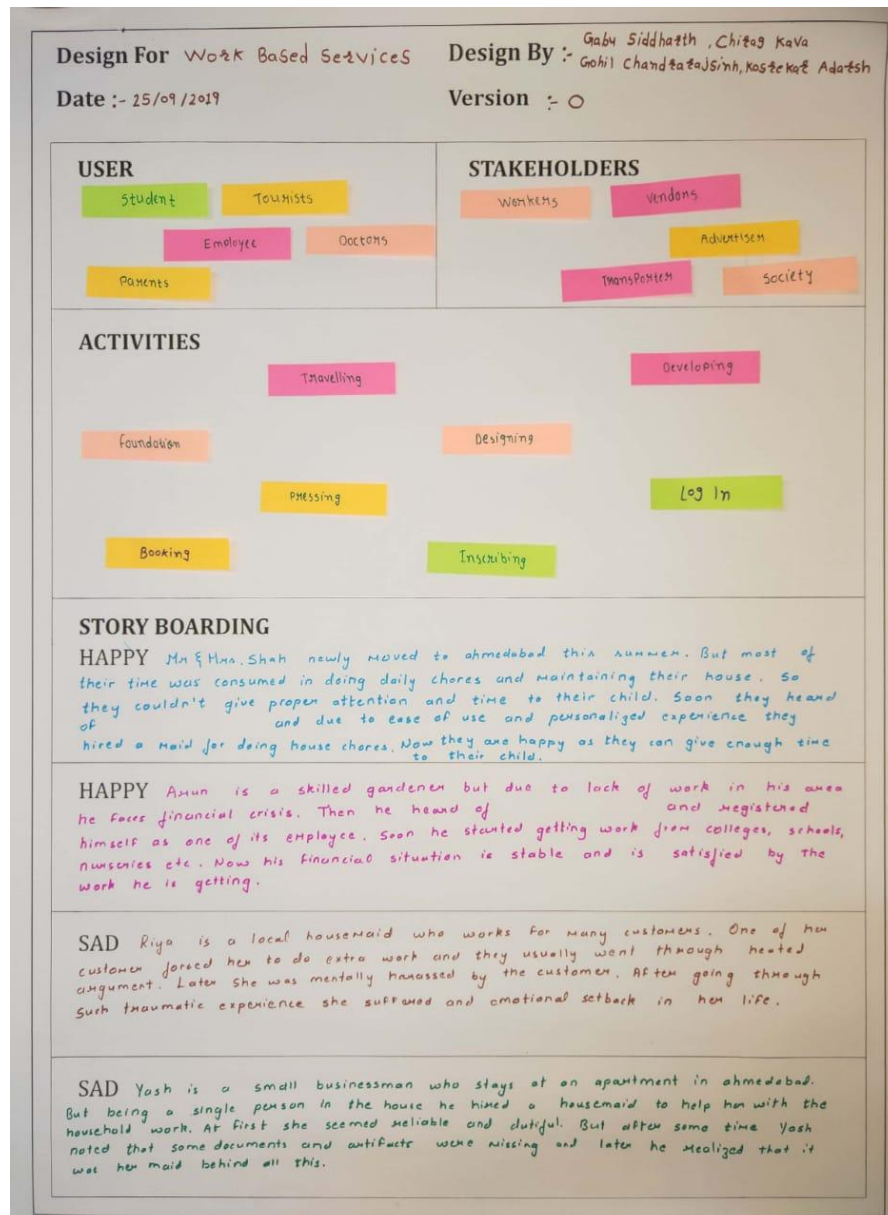 Design For Work Based Services
Design By :- Gabu Siddharth, Chirag Kava
Gohil Chandrarajsinh, Kosrekar Adarsh
Date :- 25/09/2019
Version :- 0
USER
Student
Tourists
Employee
Doctors
Parents
STAKEHOLDERS
Workers
Vendors
Advertiser
Transporter
Society
ACTIVITIES
Travelling
Developing
Foundation
Designing
Pressing
Log In
Booking
Inscribing
STORY BOARDING
HAPPY Mr & Mrs. Shah newly moved to ahmedabad this summer. But most of
their time was consumed in doing daily chores and maintaining their house. So
they couldn't give proper attention and time to their child. Soon they heard
of and due to ease of use and personalized experience they
hired a maid for doing house chores. Now they are happy as they can give enough time
to their child.
HAPPY Arun is a skilled gardener but due to lack of work in his area
he faces financial crisis. Then he heard of and registered
himself as one of its employee. Soon he started getting work from colleges, schools,
nurseries etc. Now his financial situation is stable and is satisfied by the
work he is getting.
SAD Riya is a local housemaid who works for many customers. One of her
customer forced her to do extra work and they usually went through heated
argument. Later she was mentally harassed by the customer. After going through
such traumatic experience she suffered and emotional setback in her life.
SAD Yash is a small businessman who stays at an apartment in ahmedabad.
But being a single person in the house he hired a housemaid to help her with the
household work. At first she seemed reliable and dutiful. But after some time Yash
noted that some documents and artifacts were missing and later he realized that it
was her maid behind all this.